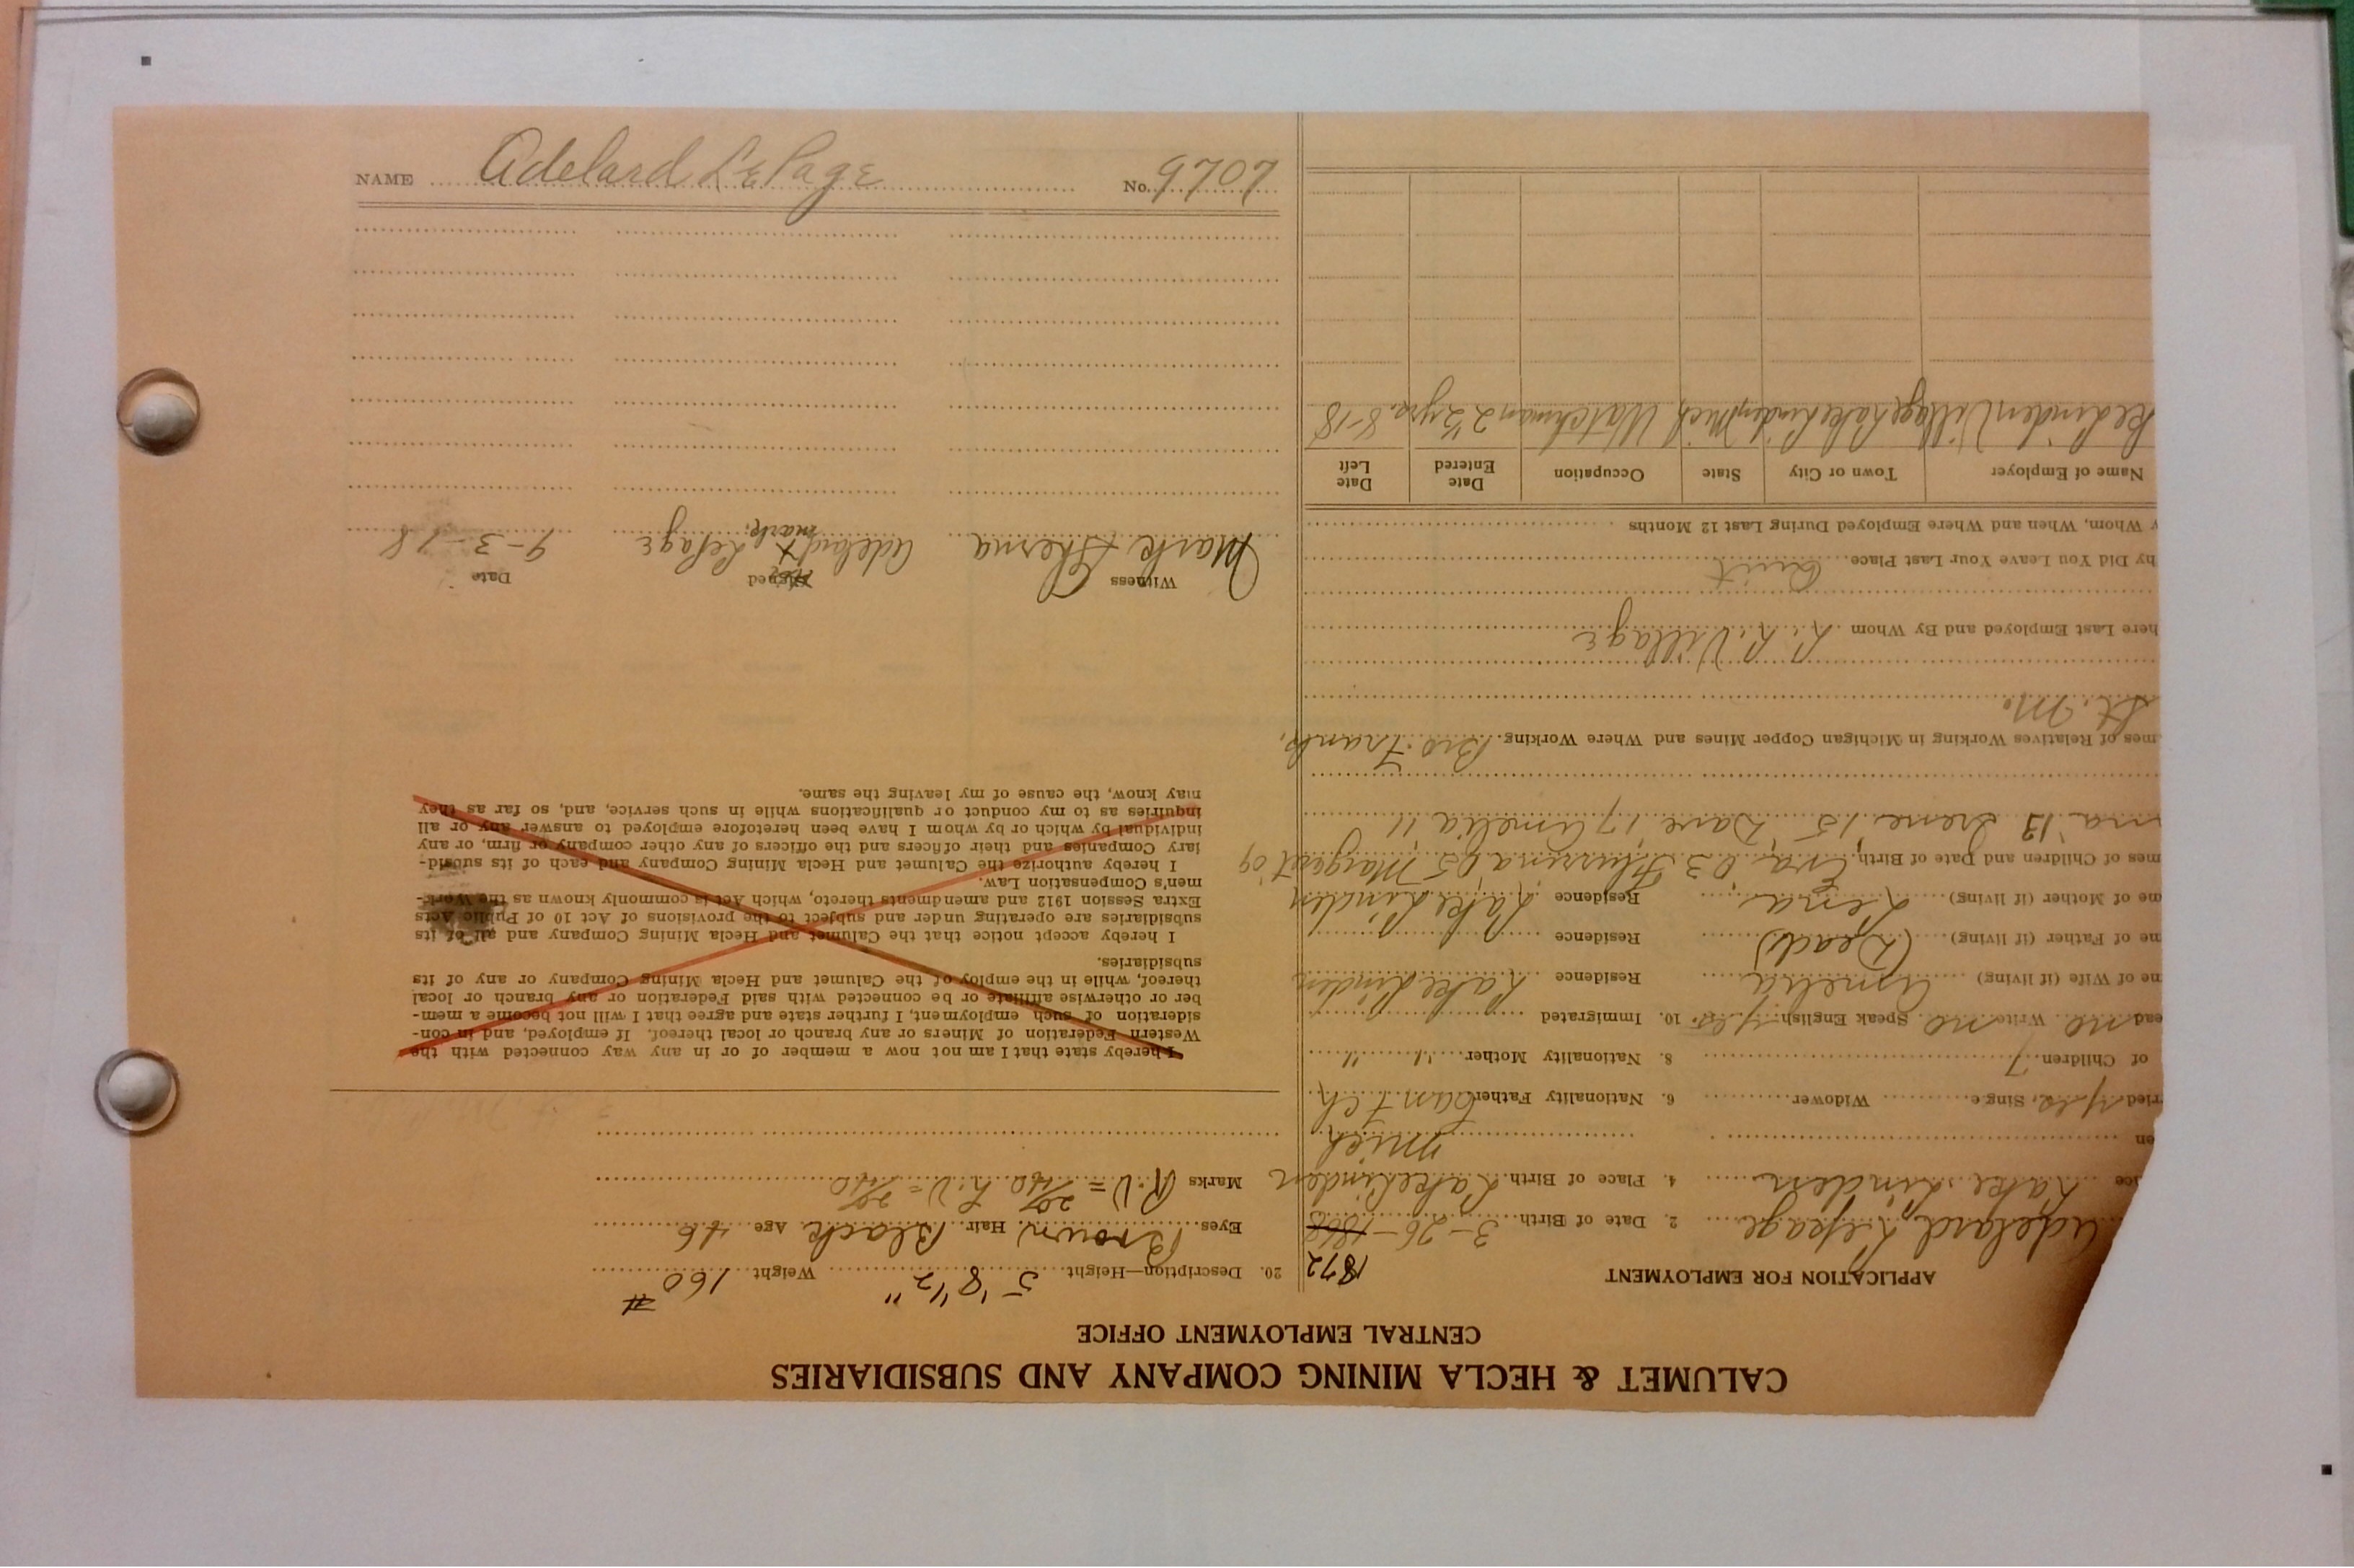 NAME Adelard LePage No. 9707
CALUMET & HECLA MINING COMPANY AND SUBSIDIARIES
CENTRAL EMPLOYMENT OFFICE
APPLICATION FOR EMPLOYMENT
Adelard Lepage 2. Date of Birth 3-26-1868 1872
Lake Linden 4. Place of Birth Lake Linden
Mich
yes Single Widower 6. Nationality Father Can Fch
of Children 7 8. Nationality Mother " "
ead no Write no Speak English yes 10. Immigrated
me of Wife (if living) Amelia Residence Lake Linden
me of Father (if living) (Dead) Residence
me of Mother (if living) Lena Residence Lake Linden
mes of Children and Date of Birth Eva 03 05 Margaret 09
13 Irene 15 Dave 17 Amelia 11
mes of Relatives Working in Michigan Copper Mines and Where Working Bro. Frank.
St. M.
here Last Employed and By Whom L. L. Village
hy Did You Leave Your Last Place Quit
y Whom, When and Where Employed During Last 12 Months
Name of Employer Town or City State Occupation Date Entered Date Left
Linden Village Lake Linden Mich Watchman 2 1/2 yrs. 8-18
20. Description—Height 5' 8 1/2" Weight 160 #
Eyes Brown Hair Black Age 46
Marks R.V = 20/40 L.V = 20/40
I hereby state that I am not now a member of or in any way connected with the
Western Federation of Miners or any branch or local thereof. If employed, and in con-
sideration of such employment, I further state and agree that I will not become a mem-
ber or otherwise affiliate or be connected with said Federation or any branch or local
thereof, while in the employ of the Calumet and Hecla Mining Company or any of its
subsidiaries.
I hereby accept notice that the Calumet and Hecla Mining Company and all of its
subsidiaries are operating under and subject to the provisions of Act 10 of Public Acts
Extra Session 1912 and amendments thereto, which Act is commonly known as the Work-
men's Compensation Law.
I hereby authorize the Calumet and Hecla Mining Company and each of its subsid-
iary Companies and their officers and the officers of any other company or firm, or any
individual by which or by whom I have been heretofore employed to answer any or all
inquiries as to my conduct or qualifications while in such service, and, so far as they
may know, the cause of my leaving the same.
Witness Signed Date
Mark Adelard X Lepage 9-3-18
mark.